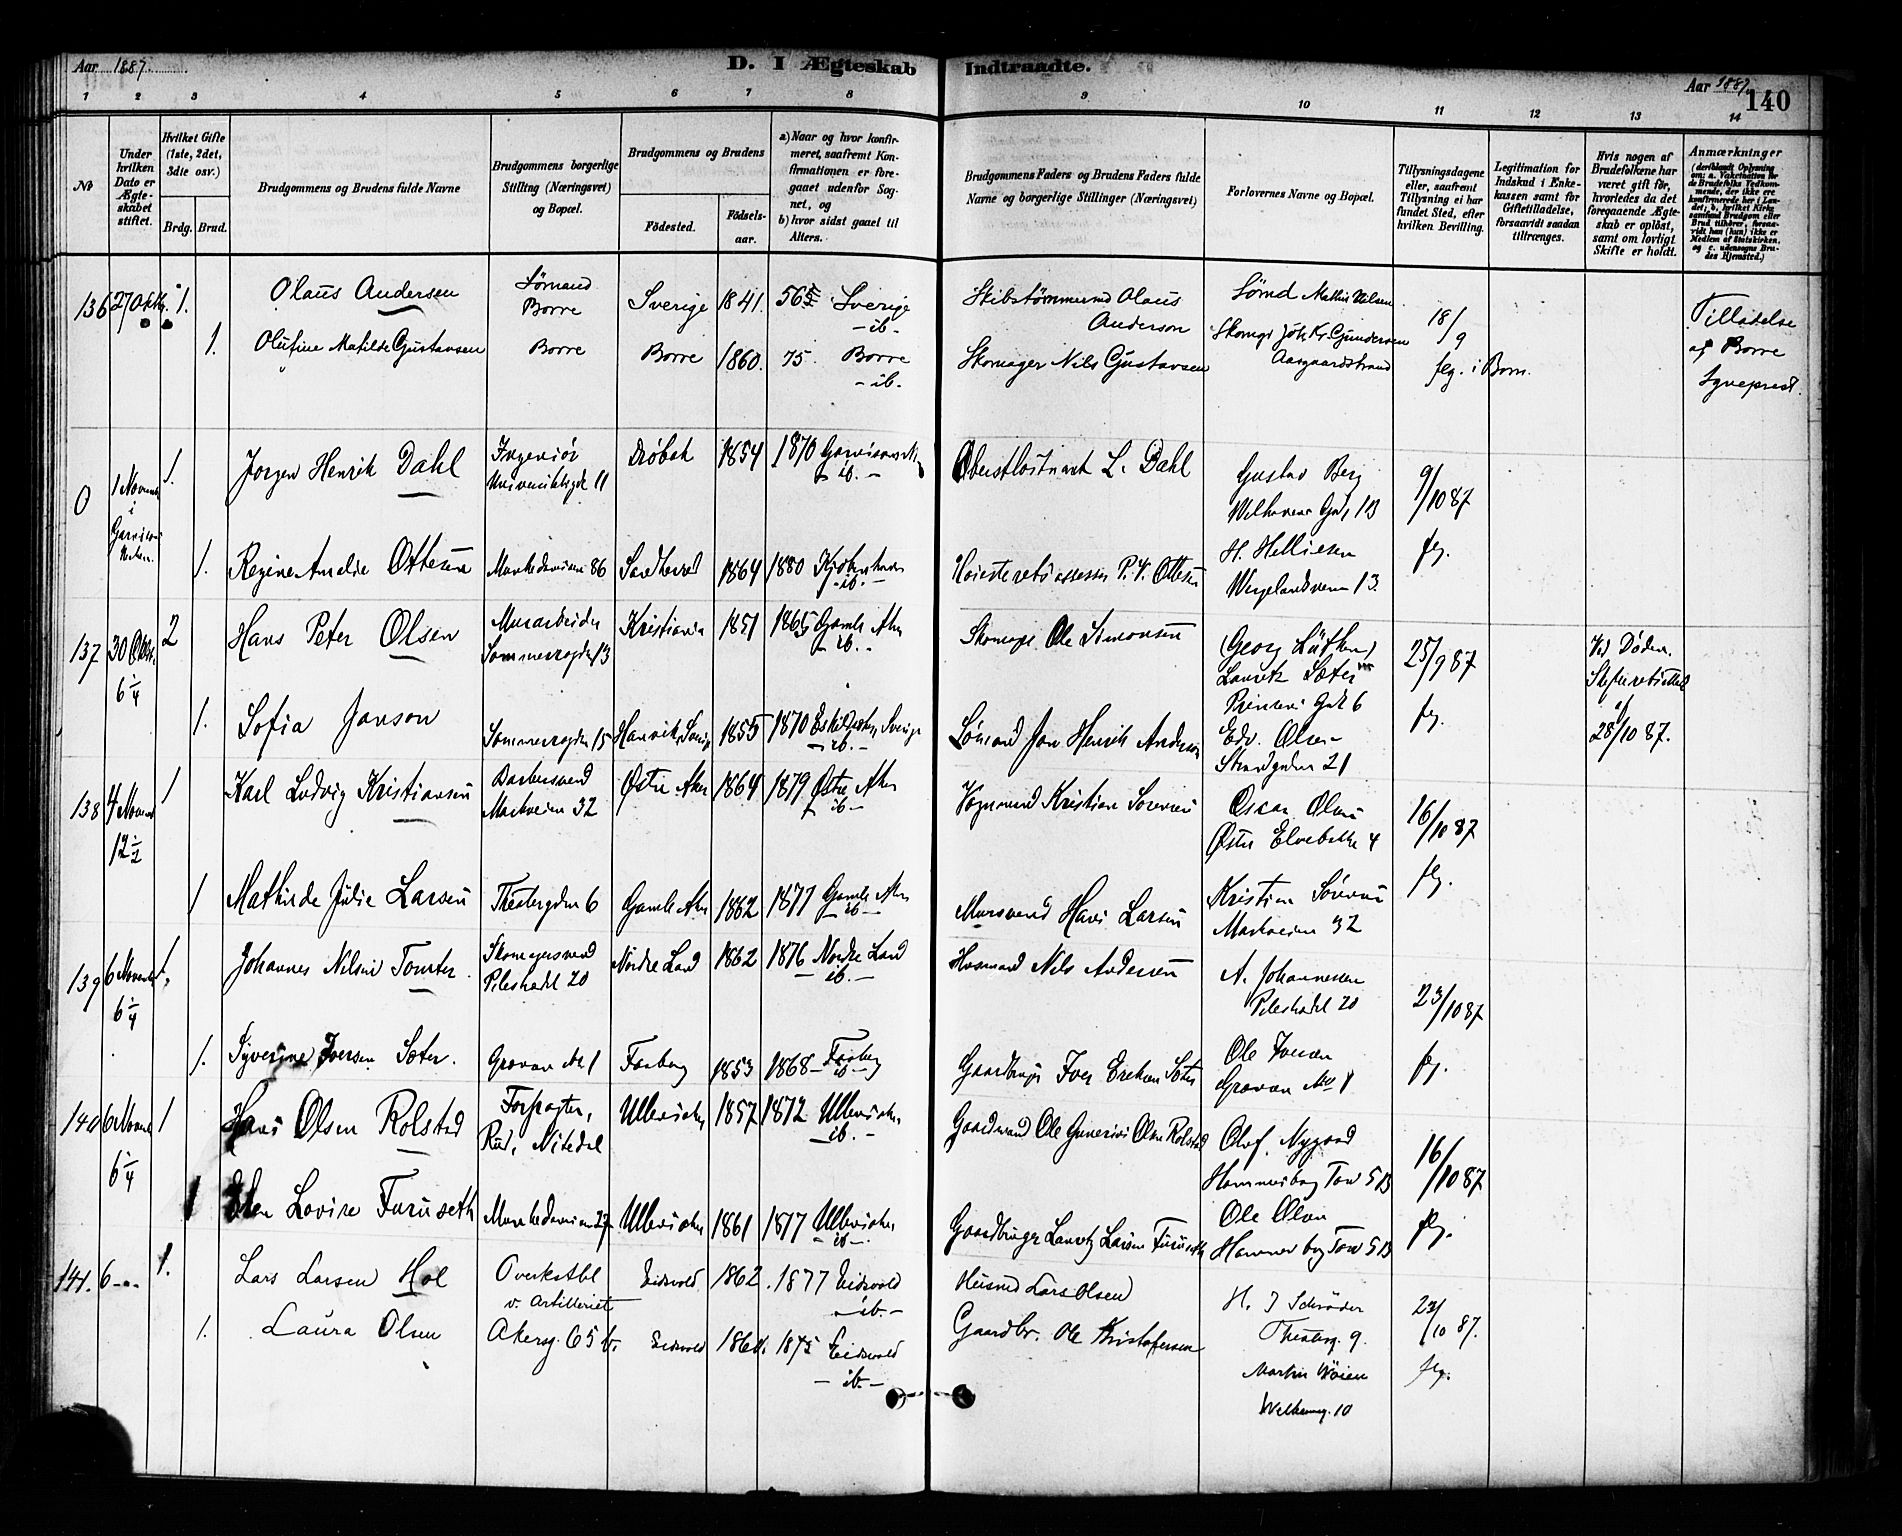 Aar 1887.
D. I Ægteskab Indtraadte.
Aar 1887.
140
1 2 3 4 5 6 7 8 9 10 11 12 13 14
No
Under hvilken Dato er Ægteskabet stiftet.
Hvilket Gifte (1ste, 2det, 3die osv.)
Brdg. Brud.
Brudgommens og Brudens fulde Navne
Brudgommens borgerlige Stilling (Næringsvei) og Bopæl.
Brudgommens og Brudens
Fødested.
Fødselsaar.
a) Naar og hvor konfirmeret, saafremt Konfirmationen er foregaaet udenfor Sognet, og
b) hvor sidst gaaet til Alters.
Brudgommens Faders og Brudens Faders fulde Navne og borgerlige Stillinger (Næringsvei)
Forlovernes Navne og Bopæl.
Tillysningsdagene eller, saafremt Tillysning ei har fundet Sted, efter hvilken Bevilling.
Legitimation for Indskud i Enkekassen samt for Giftetilladelse, forsaavidt saadan tiltrænges.
Hvis nogen af Brudefolkene har været gift før, hvorledes da det foregaaende Ægteskab er opløst, samt om lovligt Skifte er holdt.
Anmærkninger (deriblandt Oplysning om: a. Vakcination for de Brudefolks Vedkommende, der ikke ere konfirmerede her i Landet; b. hvilket Kirkesamfund Brudgom eller Brud tilhører, forsaavidt han (hun) ikke er Medlem af Statskirken, og c. udensogns Brudes Hjemsted.)
136 27 Oktb. 1. Olaus Andersen Sømand Borre Sverige 1841. 56 Sverige -ib- Skibstømmermd Olaus Anderson Sømd Mathis Nilsen 18/9 Tilladelse af Borre Sogneprest.
1. Olufine Matilde Gustavsen Borre Borre 1860. 75. Borre -ib.- Skomager Nils Gustavsen Skomgr Joh. Kr. Gundersen Aasgaardstrand flg. i Borre.
0 1 Novemb i Garnisons Kirken. 1. Jørgen Henrik Dahl Ingeniør Universitetsgd 11 Drøbak 1854 1870 Garnisonsk. -ib.- Oberstløitnant L. Dahl Gustav Berg Welhavens Gd. 1B 9/10 87
1. Regine Amalie Ottesen Markedsveien 86 Sandherred 1864 1880 Kjøbenhavn -ib.- Høiesteretsassessor P. V. Ottesen H. Helliesen Wergelandsveien 13. flg.
137 30 Oktb. 6 1/4 2 Hans Peter Olsen Murarbeider Sommerrogdn 13 Kristiania 1851 1865 Gamle Aker -ib.- Skomagr Ole Simonsen Georg Lütken Lauritz Sæter Prinsens Gad 6 25/9 87 Ved Døden. Skifteretsattest af 28/10 87.
1. Sofia Janson Sommerrogdn 15 Hanvik, Sverige 1855 1870 Eskilstuna, Sverige -ib.- Sømand Jan Henrik Anderson Edv. Olsen Strandgaden 21 flg.
138 4 Novemb 12 1/2 1 Karl Ludvig Kristiansen Barbersvend Markveien 32 Østre Aker 1864 1879 Østre Aker -ib- Vognmand Kristian Sørensen Oscar Olsen Østre Elvebakke 4 16/10 87
1 Mathilde Julie Larsen Theatergden 6 Gamle Aker 1862 1877 Gamle Aker -ib- Mursvend Hans Larsen Kristian Sørensen Markveien 32 flg.
139 6 Novemb 6 1/4 1. Johannes Nilsen Tomter. Skomagersvend Pilestrædet 20 Nordre Land 1862 1876 Nordre Land -ib.- Husmand Nils Andersen A. Johannesen Pilestrædet 20 23/10 87
1. Syverine Iversen Sæter. Graven No 1 Faaberg 1853 1868 Faaberg -ib- Gaardbrugr Iver Ereksen Sæter Ole Iversen Graven No 1 flg.
140 6 Novemb 6 1/4 1 Hans Olsen Rolstad Forpagter, Rud, Nitedal Ullensaker 1857 1872 Ullensaker -ib.- Gaardmand Ole Gunerius Olsen Rolstad Olof Nygaard Hammersborg Torv 5B 16/10 87
1 Olea Lovise Furuseth Markedsveien 27 Ullensaker 1861 1877 Ullensaker -ib- Gaardbruger Lauritz Larsen Furuseth Ole Olsen Hammersborg Torv 5B flg.
141. 6 -"- 1. Lars Larsen Hol Overkstbl v. Artilleriet Eidsvold 1862. 1877 Eidsvold -ib.- Husmd Lars Olsen H. J Schrøder Theaterg. 9. 23/10 87.
1. Laura Olsen Akersg. 65 b. Eidsvold 1860. 1875 Eidsvold -ib.- Gaardbr. Ole Kristofersen Martin Wøien Welhavensg. 10 flg.